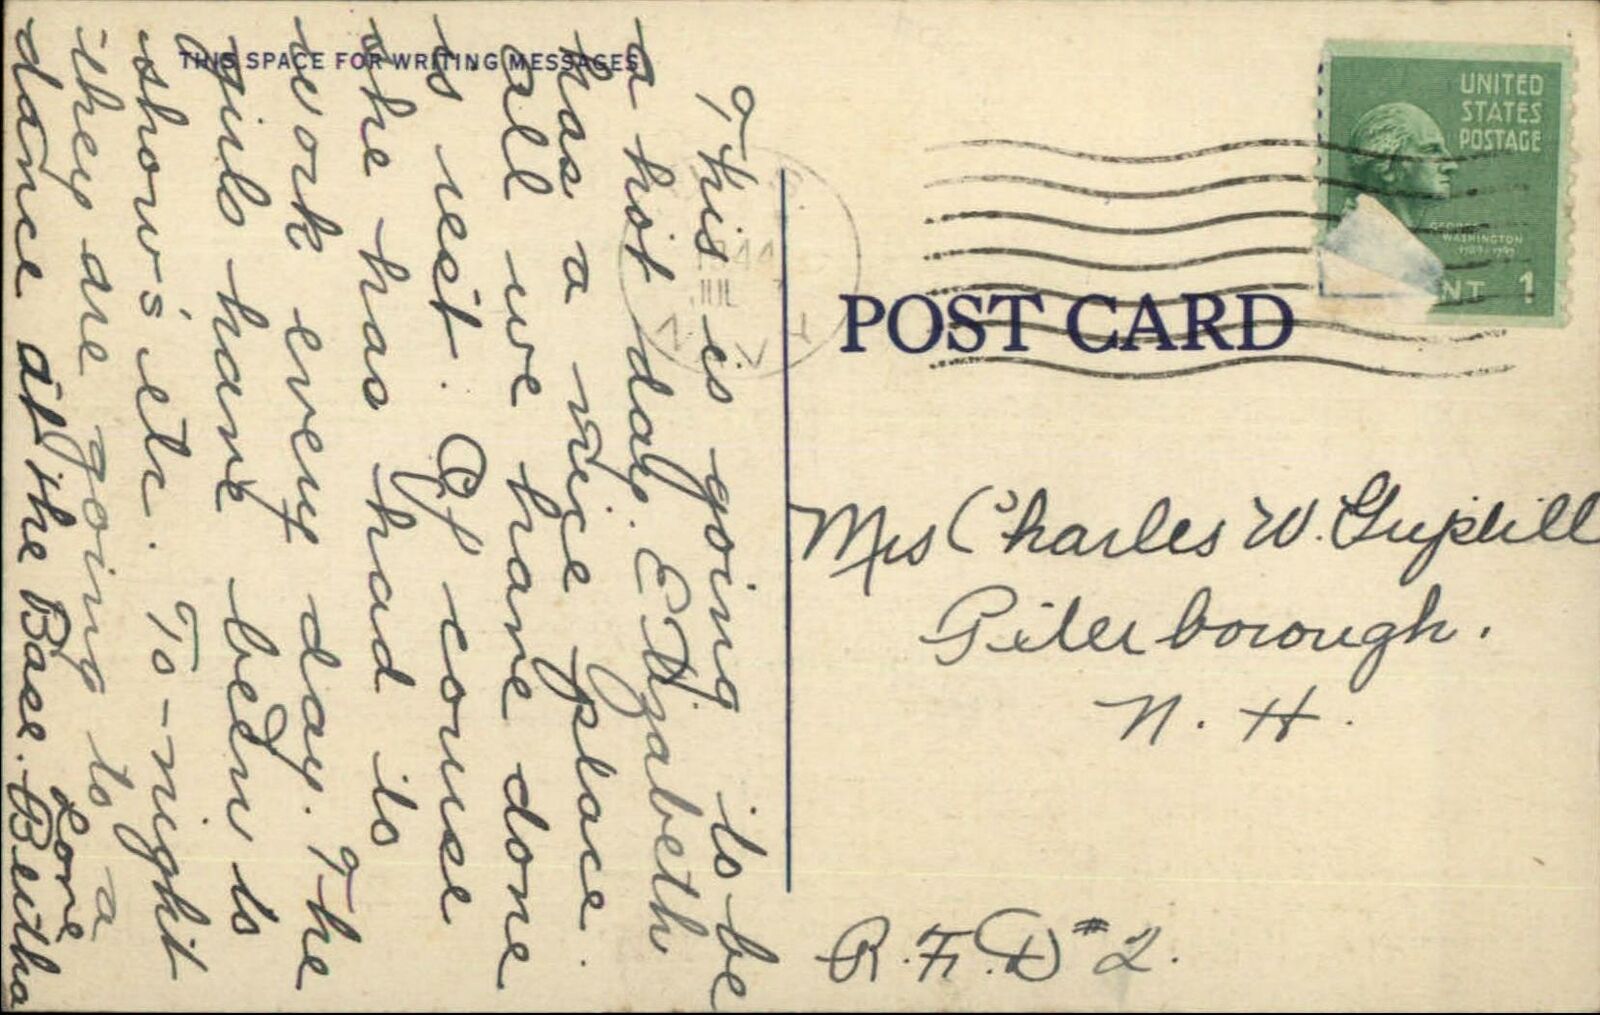 THIS SPACE FOR WRITING MESSAGES
This is going to be
a hot day. Elizabeth
has a nice place.
all we have done
is rest. Of course
she has had to
work every day. The
girls have been to
shows etc. To-night
they are going to a
dance at the Base.
Love
Bertha
POST CARD
UNITED
STATES
POSTAGE
GEORGE
WASHINGTON
NT 1
JUL
N.Y.
Mrs Charles W. Guptill
Peterborough.
N. H.
R.F.D #2.